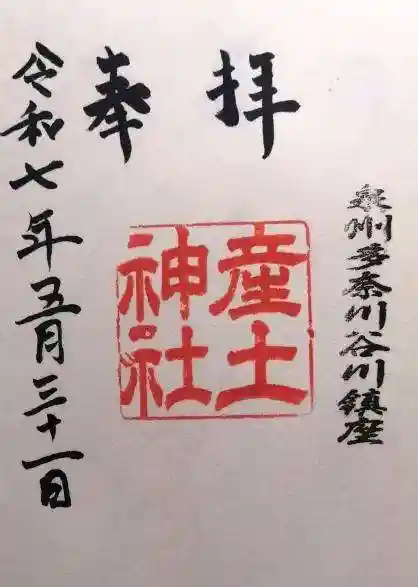 泉州多奈川谷川鎮座
奉拝
産土
神社
令和七年五月三十一日